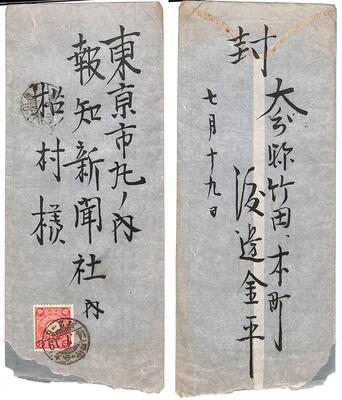 東京市丸ノ内
報知新聞社内
松村様
封
大分縣竹田、本町
渡邊金平
七月十九日